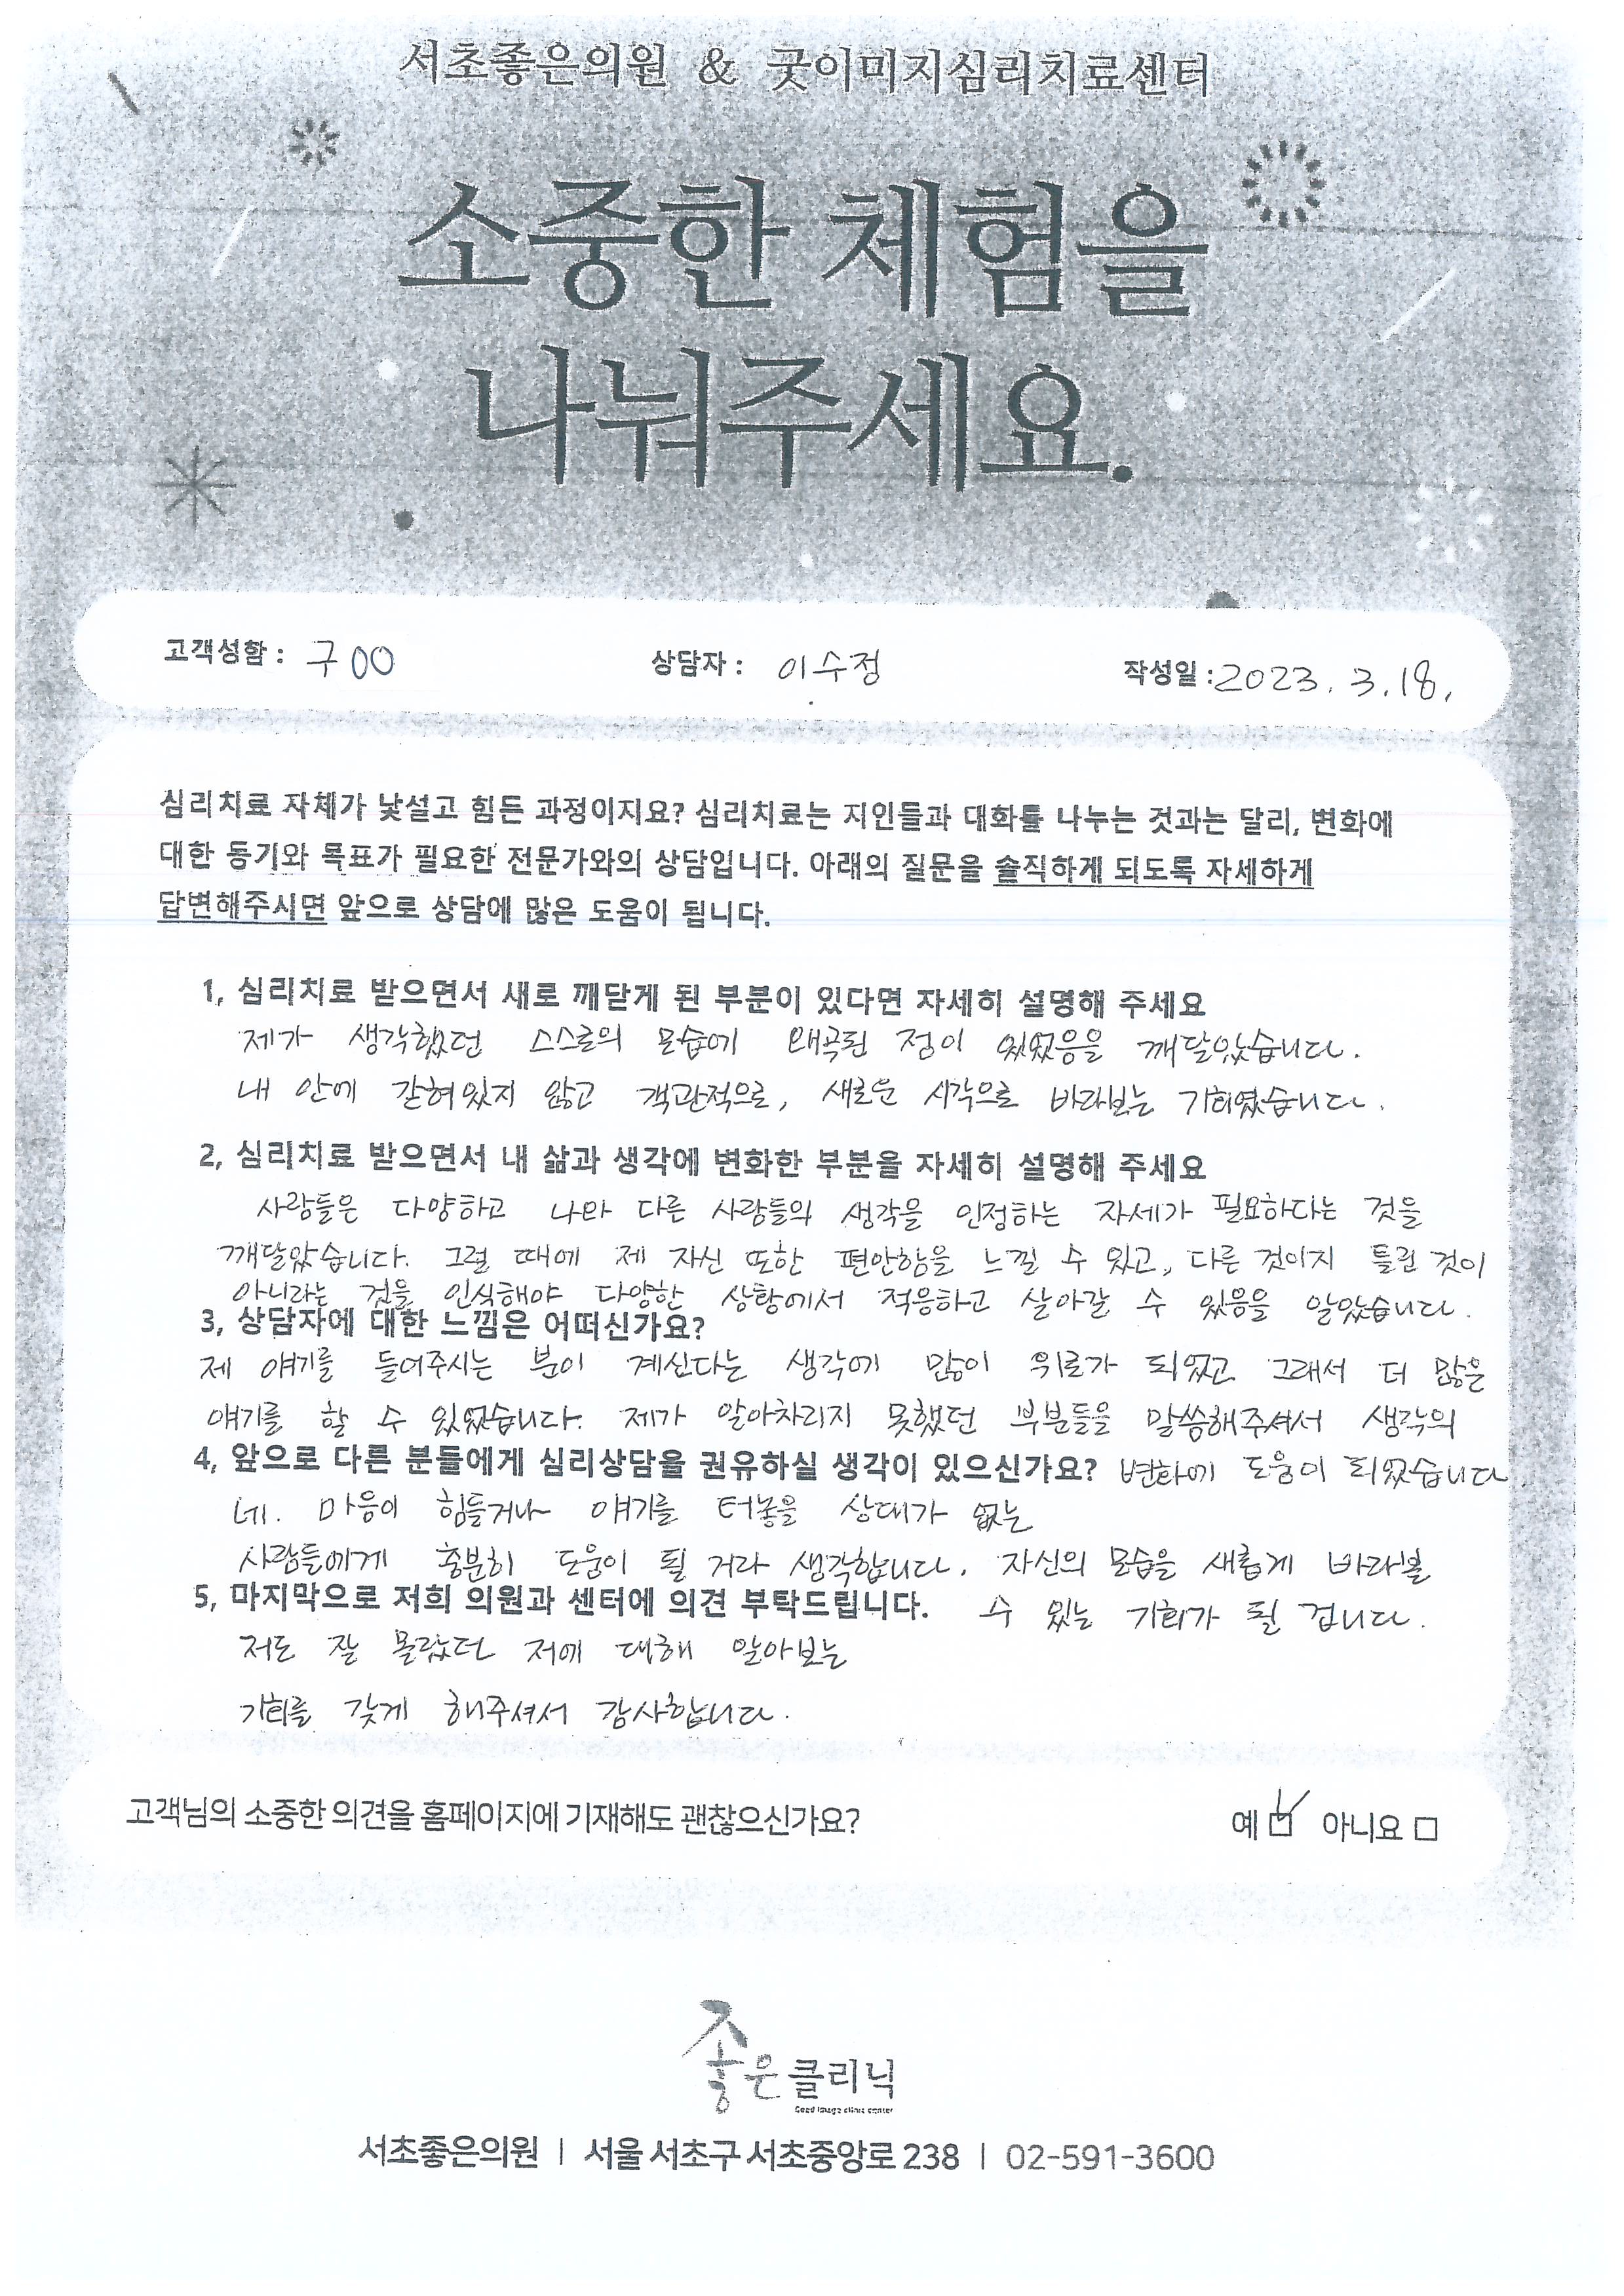 서초좋은의원 & 굿이미지심리치료센터
소중한 체험을
나눠주세요.
고객성함 : 구OO 상담자 : 이수정 작성일 : 2023. 3. 18.
심리치료 자체가 낯설고 힘든 과정이지요? 심리치료는 지인들과 대화를 나누는 것과는 달리, 변화에
대한 동기와 목표가 필요한 전문가와의 상담입니다. 아래의 질문을 솔직하게 되도록 자세하게
답변해주시면 앞으로 상담에 많은 도움이 됩니다.
1, 심리치료 받으면서 새로 깨닫게 된 부분이 있다면 자세히 설명해 주세요
제가 생각했던 스스로의 모습에 왜곡된 점이 있었음을 깨달았습니다.
내 안에 갇혀있지 않고 객관적으로, 새로운 시각으로 바라보는 기회였습니다.
2, 심리치료 받으면서 내 삶과 생각에 변화한 부분을 자세히 설명해 주세요
사람들은 다양하고 나와 다른 사람들의 생각을 인정하는 자세가 필요하다는 것을
깨달았습니다. 그럴 때에 제 자신 또한 편안함을 느낄 수 있고, 다른 것이지 틀린 것이
아니라는 것을 인식해야 다양한 상황에서 적응하고 살아갈 수 있음을 알았습니다.
3, 상담자에 대한 느낌은 어떠신가요?
제 얘기를 들어주시는 분이 계신다는 생각에 많이 위로가 되었고 그래서 더 많은
얘기를 할 수 있었습니다. 제가 알아차리지 못했던 부분들을 말씀해주셔서 생각의
변화에 도움이 되었습니다
4, 앞으로 다른 분들에게 심리상담을 권유하실 생각이 있으신가요?
네. 마음이 힘들거나 얘기를 터놓을 상대가 없는
사람들에게 충분히 도움이 될 거라 생각합니다. 자신의 모습을 새롭게 바라볼
수 있는 기회가 될 겁니다.
5, 마지막으로 저희 의원과 센터에 의견 부탁드립니다.
저도 잘 몰랐던 저에 대해 알아보는
기회를 갖게 해주셔서 감사합니다.
고객님의 소중한 의견을 홈페이지에 기재해도 괜찮으신가요? 예 ☑ 아니요 □
좋은클리닉
Good image clinic center
서초좋은의원 | 서울 서초구 서초중앙로 238 | 02-591-3600